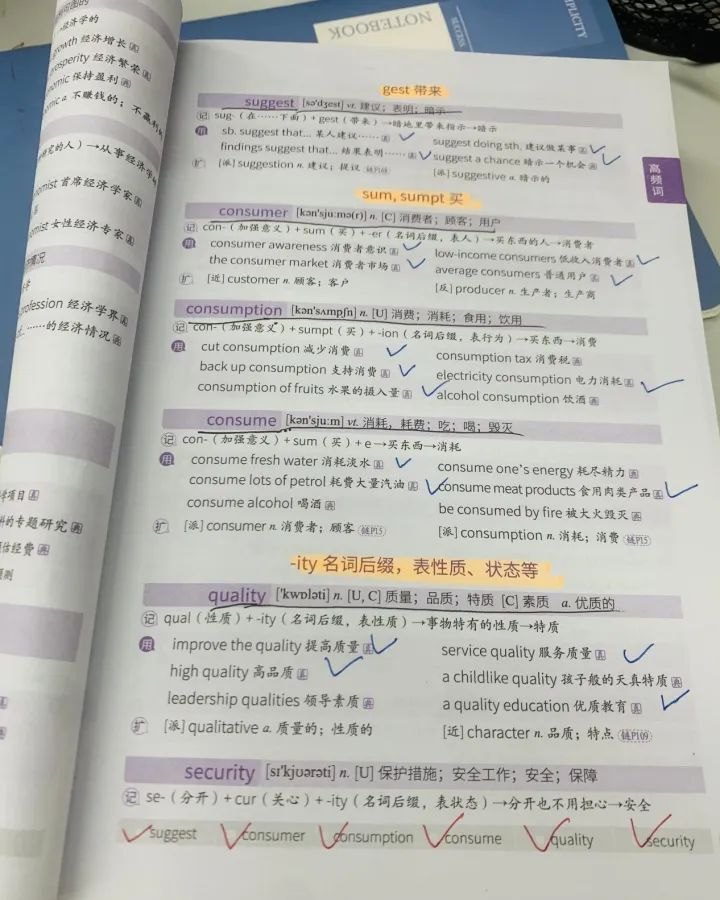 NOTEBOOK
SUCCESS
经济学的
growth 经济增长
prosperity 经济繁荣
保持盈利
不赚钱的；不赢利
研究的人）→从事经济学的
首席经济学家
女性经济专家
profession 经济学界
……的经济情况
项目
的专题研究
估经费
gest 带来
suggest [sə'dʒest] vt. 建议；表明；暗示
记 sug-（在……下面）+ gest（带来）→暗地里带来指示→暗示
用 sb. suggest that... 某人建议…… suggest doing sth. 建议做某事
findings suggest that... 结果表明…… suggest a chance 暗示一个机会
扩 [派] suggestion n. 建议；提议 [派] suggestive a. 暗示的
高频词
sum, sumpt 买
consumer [kən'sjuːmə(r)] n. [C] 消费者；顾客；用户
记 con-（加强意义）+ sum（买）+ -er（名词后缀，表人）→买东西的人→消费者
用 consumer awareness 消费者意识 low-income consumers 低收入消费者
the consumer market 消费者市场 average consumers 普通用户
扩 [近] customer n. 顾客；客户 [反] producer n. 生产者；生产商
consumption [kən'sʌmpʃn] n. [U] 消费；消耗；食用；饮用
记 con-（加强意义）+ sumpt（买）+ -ion（名词后缀，表行为）→买东西→消费
用 cut consumption 减少消费 consumption tax 消费税
back up consumption 支持消费 electricity consumption 电力消耗
consumption of fruits 水果的摄入量 alcohol consumption 饮酒
consume [kən'sjuːm] vt. 消耗，耗费；吃；喝；毁灭
记 con-（加强意义）+ sum（买）+ e→买东西→消耗
用 consume fresh water 消耗淡水 consume one's energy 耗尽精力
consume lots of petrol 耗费大量汽油 consume meat products 食用肉类产品
consume alcohol 喝酒 be consumed by fire 被大火毁灭
扩 [派] consumer n. 消费者；顾客 链P15 [派] consumption n. 消耗；消费 链P15
-ity 名词后缀，表性质、状态等
quality ['kwɒləti] n. [U, C] 质量；品质；特质 [C] 素质 a. 优质的
记 qual（性质）+ -ity（名词后缀，表性质）→事物特有的性质→特质
用 improve the quality 提高质量 service quality 服务质量
high quality 高品质 a childlike quality 孩子般的天真特质
leadership qualities 领导素质 a quality education 优质教育
扩 [派] qualitative a. 质量的；性质的 [近] character n. 品质；特点 链P109
security [sɪ'kjʊərəti] n. [U] 保护措施；安全工作；安全；保障
记 se-（分开）+ cur（关心）+ -ity（名词后缀，表状态）→分开也不用担心→安全
suggest consumer consumption consume quality security